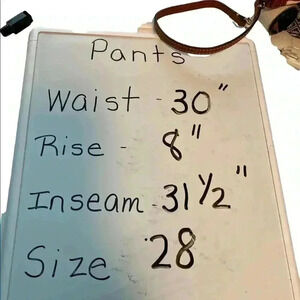 Pants
Waist - 30"
Rise - 8"
Inseam - 31 1/2"
Size 28